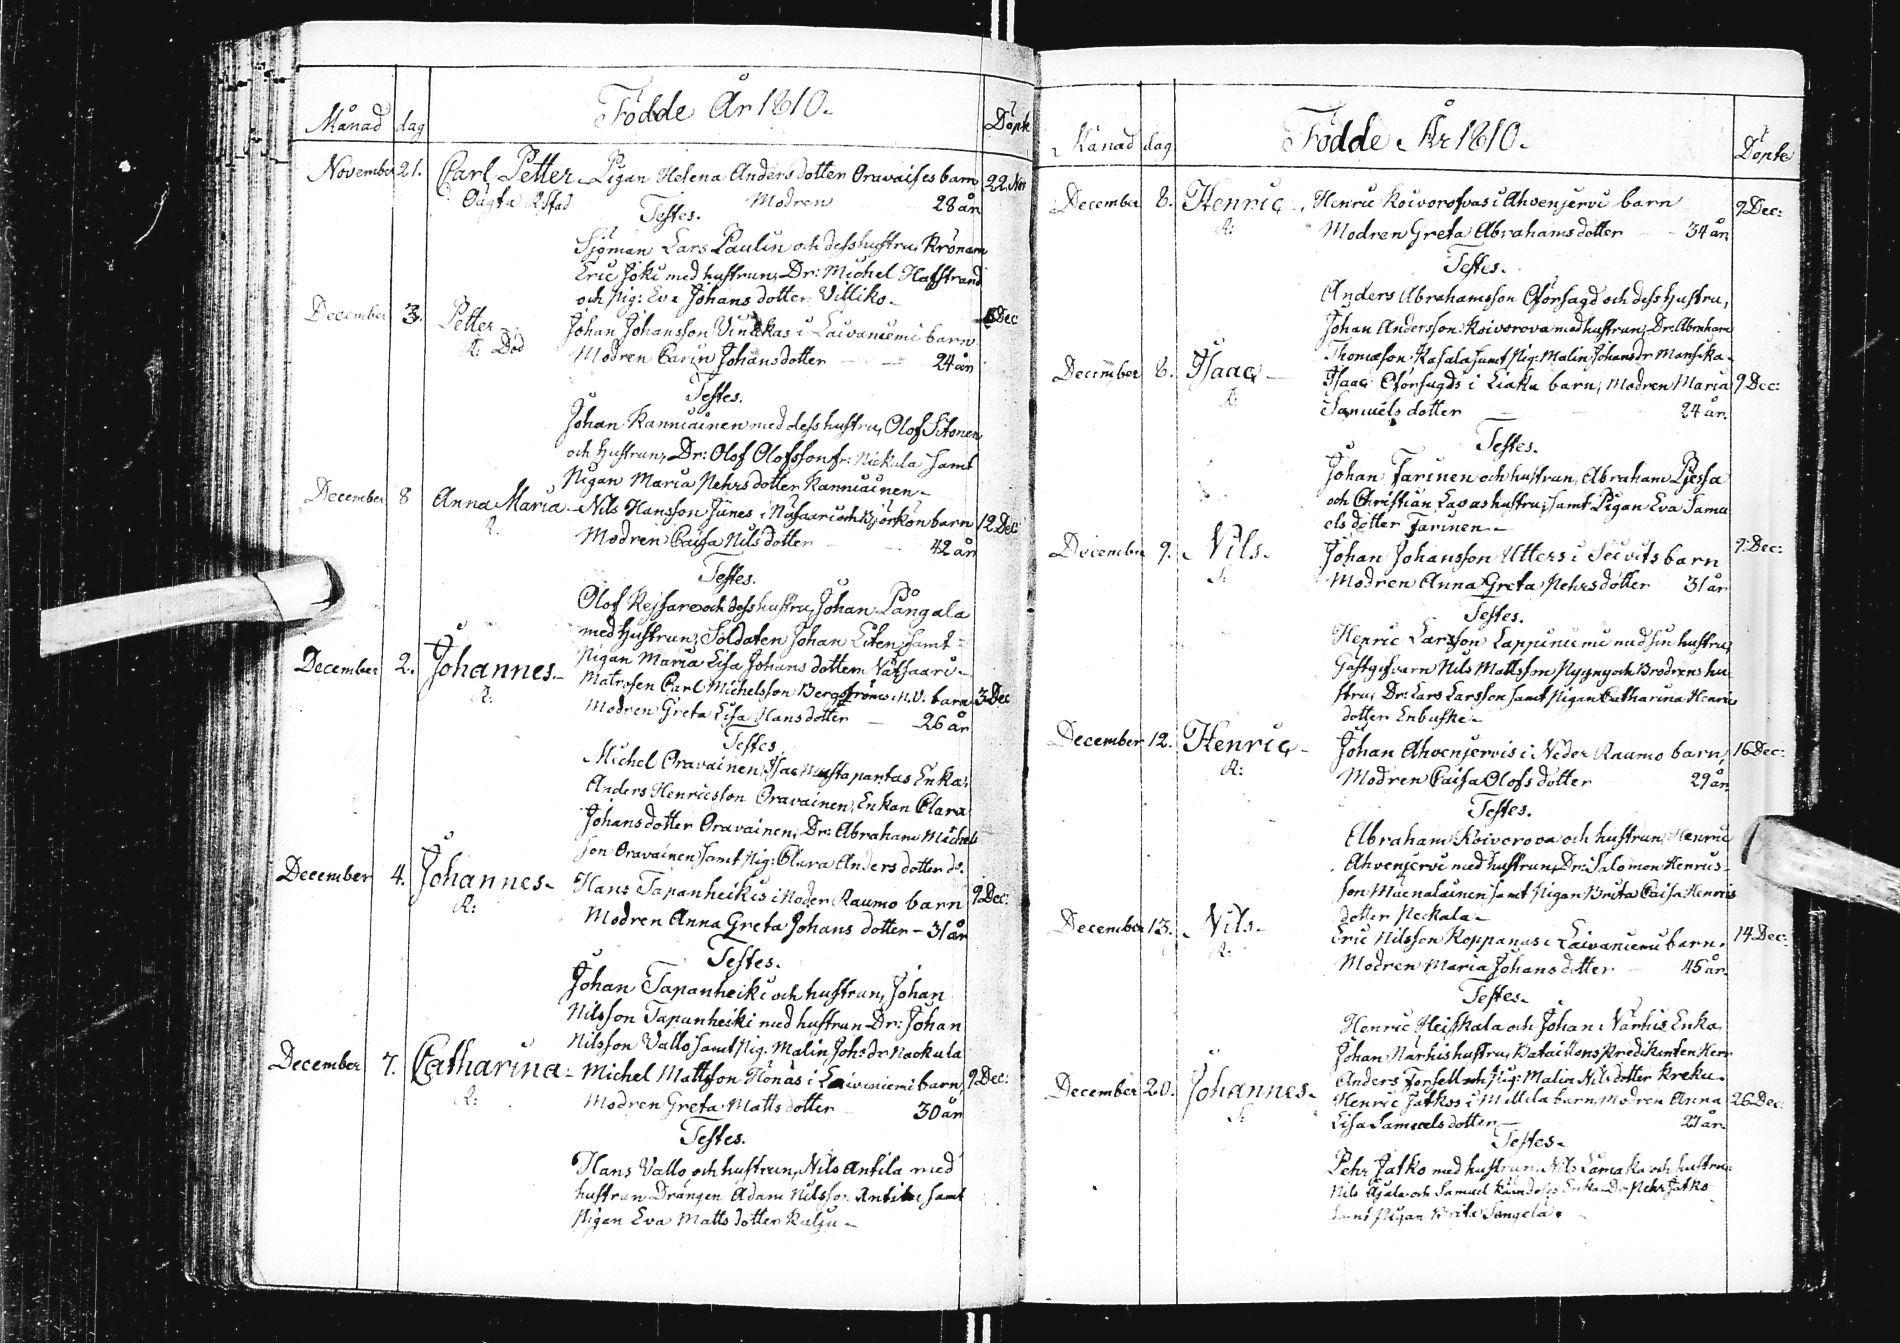 Födde År 1810.
Månad dag Döpte
November 21. Carl Petter Pigan Helena Andersdotter Oravaises barn 22 Nov
Oägta Modren 28 år
Testes.
Sjöman Lars Paulin och dess hustru, Krönare
Eric Joki med hustrun, Dr: Michel Hafstrand
och Pig: Eva Johansdotter Vittiko.
December 3. Petter Johan Johansson Vinikas i Laivaniemi barn Dec
R: Död Modren Carin Johansdotter 24 år
Testes.
Johan Kanniainen med dess hustru, Olof Sitonen
och hustrun, Dr: Olof Olofsson fr: Nickula samt
Pigan Maria Pehrsdotter Kanniainen.
December 8 Anna Maria Nils Hansson Junes i och Björkön barn 12 Dec
R. Modren Caisa Nilsdotter 42 år
Testes.
Olof och dess hustru, Johan Pångala
med hustrun, Soldaten Johan Liten, samt
Pigan Maria Lisa Johans dotter
December 2. Johannes. Matrosen Carl Michelsson Bergströms i N.V. barn 3 Dec
R: Modren Greta Lisa Hansdotter 26 år
Testes
Michel Oravainen, Isac Enka,
Anders Henricsson Oravainen, Enkan Clara
Johansdotter Oravainen, Dr: Abraham Michels
son Oravainen samt Pig: Clara Andersdotter do.
December 4. Johannes. Hans Tapanheikis i Neder Raumo barn 9 Dec:
R: Modren Anna Greta Johans dotter – 31 år
Testes.
Johan Tapanheiki och hustrun, Johan
Nilsson Tapanheiki med hustrun Dr: Johan
Nilsson Vallo samt Pig. Malin Johsdr Naokula
December 7. Catharina Michel Mattsson Hönäs i Laivaniemi barn, 9 Dec:
R: Modren Greta Mattsdotter 30 år
Testes.
Hans Vallo och hustrun, Nils Antila med
hustrun Drängen Adam Nilsson Antila samt
Pigan Eva Mattsdotter Kalju
Födde År 1810.
Månad dag Döpte
December 8. Henric Henric Koivorofvas i Ahvenjervi barn 9 Dec:
R: Modren Greta Abrahamsdotter 34 år
Testes.
Anders Abrahamsson Oförsagd och dess hustru,
Johan Andersson Koivorova med hustrun, Dr: Abraham
Thomasson Kasala samt Pig: Malin Johansdr Mansika.
December 8. Isaac Isaac Oförsagds i Liaka barn, Modren Maria 9 Dec:
R: Samuelsdotter 24 år.
Testes.
Johan Farinen och hustrun, Abraham
och Christian Lavas hustru, samt Pigan Eva Samu
elsdotter Farinen.
December 9. Nils. Johan Johansson Utters i Seivits barn 9 Dec:
Modren Anna Greta Pehrsdotter 31 år
Testes.
Henric Larsson Lappiniemi med sin hustru,
Gästgifvarn Nils Mattsson och Brodrens hu
stru, Dr: Lars Larsson samt Pigan Catharina Henrics
dotter Enbuske.
December 12. Henric Johan Ahvenjervis i Neder Raumo barn, 16 Dec:
R: Modren Caisa Olofsdotter 29 år
Testes.
Abraham Koivorova och hustrun, Henric
Ahvenjervi med hustrun, Dr: Salomon Henrics
son Maenalainen samt Pigan Brita Caisa Henrics
dotter Peckala.
December 13. Nils. Eric Nilsson Koppanas i Laivaniemi barn. 14 Dec:
R: Modren Maria Johansdotter 45 år.
Testes.
Henric Heiskala och Johan Närhis Enka
Johan Närhis hustru, Bataillons Predikanten Herr
Anders Forsell och Pig: Malin Nilsdotter Kreku.
December 20. Johannes. Henric Jatkos i Mattila barn, Modren Anna 26 Dec:
Lisa Samuelsdotter 27 år.
Testes.
Pehr Jatko med hustrun, Nils Lamaka och hustrun
Nils och Samuel Enka Dr: Pehr Jatko
samt Pigan Brita Sangela.